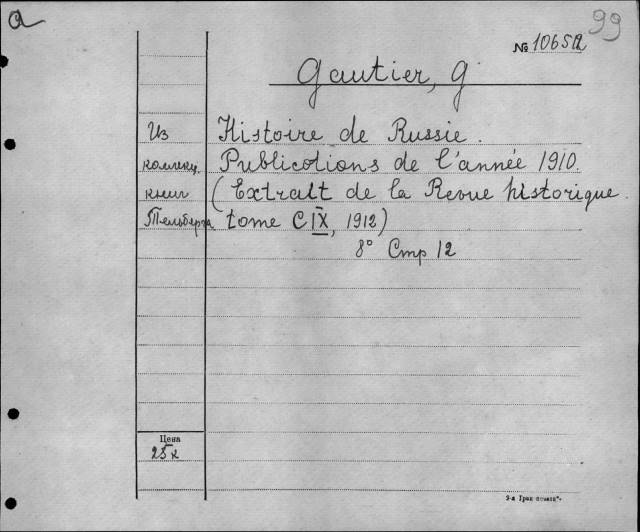 a
99
№ 10652
Gautier, G
Из Histoire de Russie.
коллекц. Publications de l'année 1910.
книг (Extrait de la Revue historique.
Тельберга tome CIX, 1912)
8° Стр 12
Цена
25 к